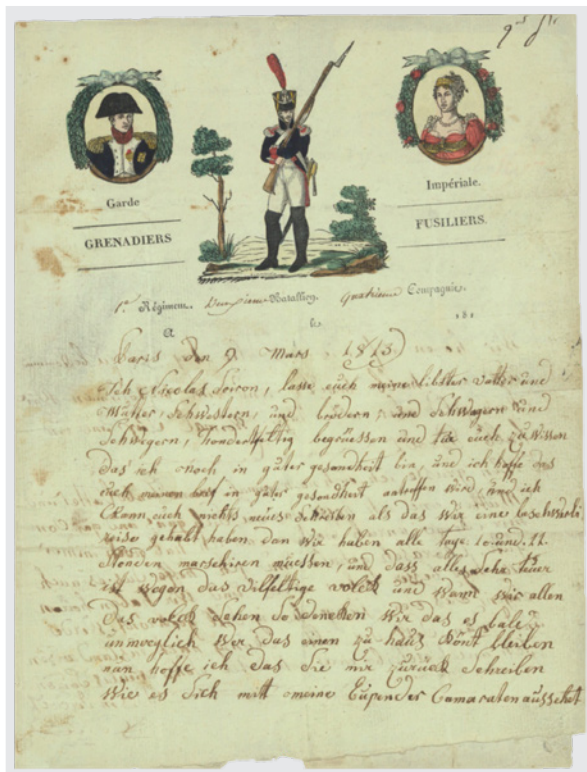 Garde
Impériale.
GRENADIERS
FUSILIERS.
1r Régiment. Deuxieme Bataillon, Quatrieme Compagnie.
A le 181
Paris Den 9. Mars. 1813
Ich Nicolas Soiron, lasse euch meine libster vatter und
Mutter, Schwestern, und brödern, und Schwagern und
Schwegern, hondertfeltig begrüssen und tue euch zu wissen
das ich noch in guter gesondheit bin, und ich hoffe das
euch meinen brif in guter gesondheit antreffen wird, und ich
kann euch nichts neues Schreiben als das wir eine
reise gehabt haben dan wir haben alle tage 10 und 11
stonden marschiren muessen, und dass alles Sehr teuer
ist wegen das vilfeltige volck und wann wir allen
das volck Sehen So dencken wir das es bald
unmoeglich wer das einen zu haus könt bleiben
nun hoffe ich das Sie mir zurück Schreiben
wie es Sich mitt meine Eupender Camaraten aussehet